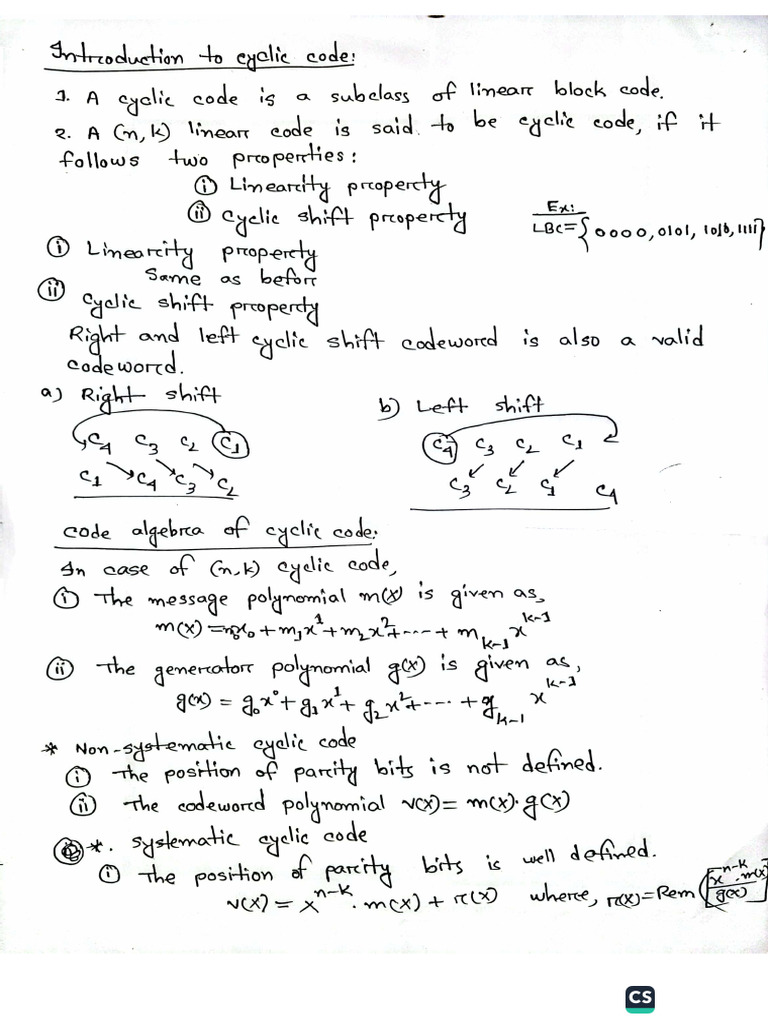 Introduction to cyclic code:
1. A cyclic code is a subclass of linear block code.
2. A (n, k) linear code is said to be cyclic code, if it
follows two properties:
(i) Linearity property
(ii) cyclic shift property
Ex:
LBC = {0000, 0101, 1010, 1111}
(i) Linearity property
Same as before
(ii) cyclic shift property
Right and left cyclic shift codeword is also a valid
codeword.
a) Right shift
b) Left shift
C4 C3 C2 C1
C1 C4 C3 C2
C4 C3 C2 C1
C3 C2 C1 C4
code algebra of cyclic code:
In case of (n,k) cyclic code,
(i) The message polynomial m(x) is given as,
m(x) = m0x0 + m1x^1 + m2x^2 + ---- + m_{k-1} x^{k-1}
(ii) The generator polynomial g(x) is given as,
g(x) = g0x^0 + g1x^1 + g2x^2 + ---- + g_{k-1} x^{k-1}
* Non-systematic cyclic code
(i) The position of parity bits is not defined.
(ii) The codeword polynomial v(x) = m(x)·g(x)
*. systematic cyclic code
(i) The position of parity bits is well defined.
v(x) = x^{n-k} . m(x) + r(x) where, r(x) = Rem (x^{n-k}.m(x) / g(x))
CS